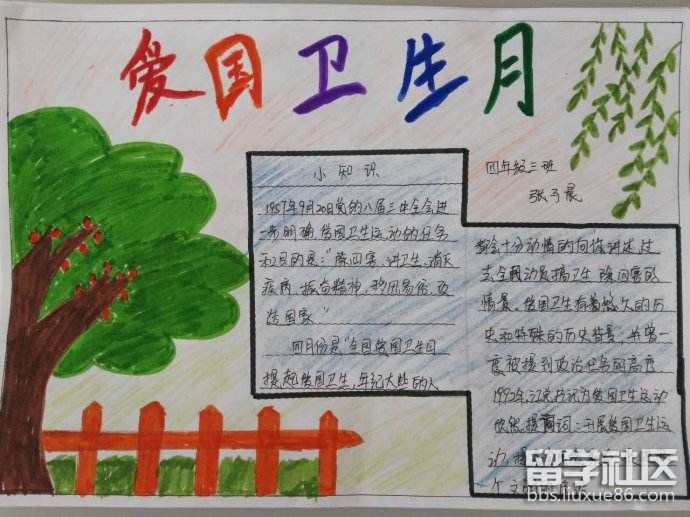 爱国卫生月
小知识
四年级三班
1957年9月20日党的八届三中全会进
一步明确爱国卫生运动的任务
和目的是:"除四害,讲卫生,消灭
疾病,振奋精神,移风易俗,改
造国家"
四月份是"全国爱国卫生月
提起爱国卫生,年纪大些的人
都会十分动情的向你讲述过
去全国动员搞卫生除四害的
情景,爱国卫生有着较久的历
史和特殊的历史背景,并曾一
度被提到政治任务的高度
1992年,江泽民为爱国卫生运动
题词:开展爱国卫生运
动,
留学社区
bbs.liuxue86.com